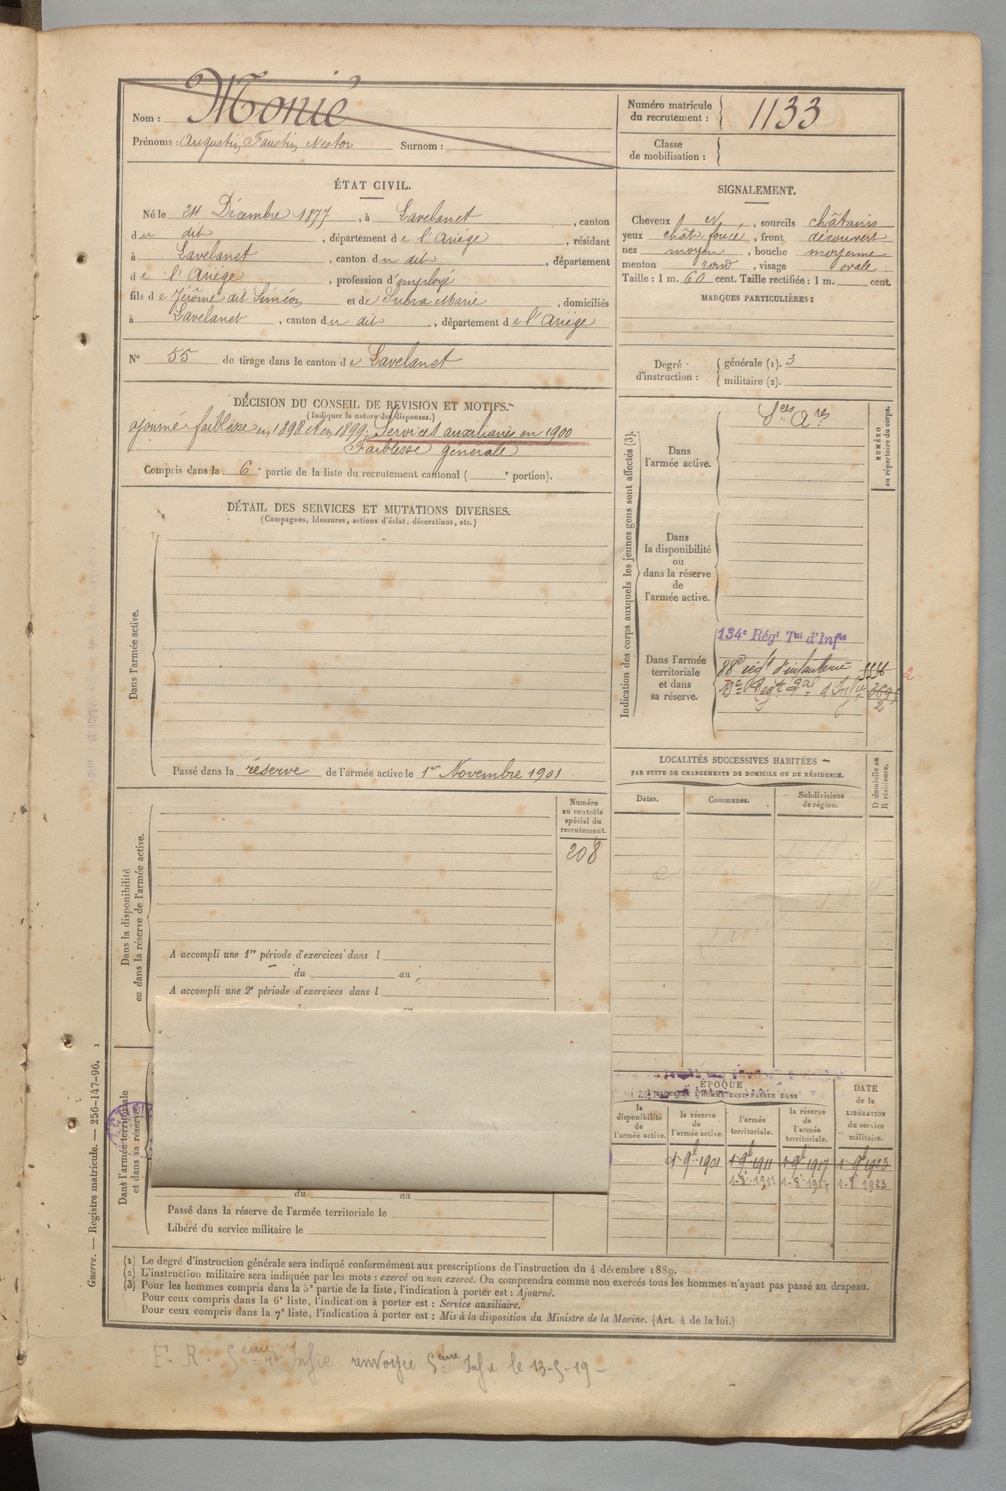 Nom : Monié
Prénoms : Augustin, Faustin, Nestor Surnom :
Numéro matricule du recrutement : 1133
Classe de mobilisation :
ÉTAT CIVIL.
Né le 24 Décembre 1877, à Lavelanet, canton
du dit, département de l'Ariège, résidant
à Lavelanet, canton du dit, département
de l'Ariège, profession d'employé
fils de Jérôme dit Siméon et de Subra Marie, domiciliés
à Lavelanet, canton du dit, département de l'Ariège
N° 55 de tirage dans le canton de Lavelanet
SIGNALEMENT.
Cheveux, sourcils châtains
yeux chât foncé, front découvert
nez moyen, bouche moyenne
menton rond, visage ovale
Taille : 1 m. 60 cent. Taille rectifiée : 1 m. cent.
MARQUES PARTICULIÈRES :
Degré d'instruction : générale (1). 3
militaire (2).
DÉCISION DU CONSEIL DE RÉVISION ET MOTIFS.
(Indiquer la nature des dispenses.)
ajourné faiblesse en 1898 et en 1899. Services auxiliaires en 1900
Faiblesse générale
Compris dans la 6e partie de la liste du recrutement cantonal ( e portion).
DÉTAIL DES SERVICES ET MUTATIONS DIVERSES.
(Campagnes, blessures, actions d'éclat, décorations, etc.)
Dans l'armée active.
Passé dans la réserve de l'armée active le 1er Novembre 1901
Indication des corps auxquels les jeunes gens sont affectés (3).
NUMÉRO au répertoire du corps.
Dans l'armée active. Sces Ares
Dans la disponibilité ou dans la réserve de l'armée active.
Dans l'armée territoriale et dans sa réserve.
134e Régt Tal d'Infie
88e régt d'infanterie
LOCALITÉS SUCCESSIVES HABITÉES
PAR SUITE DE CHANGEMENTS DE DOMICILE OU DE RÉSIDENCE.
Dates. Communes. Subdivisions de région. D. domicile ou R. résidence.
Dans la disponibilité ou dans la réserve de l'armée active.
Numéro au contrôle spécial du recrutement.
208
A accompli une 1re période d'exercices dans l
du au
A accompli une 2e période d'exercices dans l
Dans l'armée territoriale et dans sa réserve
du au
Passé dans la réserve de l'armée territoriale le
Libéré du service militaire le
ÉPOQUE
la disponibilité de l'armée active. la réserve de l'armée active. l'armée territoriale. la réserve de l'armée territoriale. DATE de la LIBÉRATION du service militaire.
1 9b 1901 1 9b 1911 1 9b 1917 1 9b 1923
1-8-1911 1-8-1917 1-8 1923
(1) Le degré d'instruction générale sera indiqué conformément aux prescriptions de l'instruction du 4 décembre 1889.
(2) L'instruction militaire sera indiquée par les mots : exercé ou non exercé. On comprendra comme non exercés tous les hommes n'ayant pas passé au drapeau.
(3) Pour les hommes compris dans la 5e partie de la liste, l'indication à porter est : Ajourné.
Pour ceux compris dans la 6e liste, l'indication à porter est : Service auxiliaire.
Pour ceux compris dans la 7e liste, l'indication à porter est : Mis à la disposition du Ministre de la Marine. (Art. 4 de la loi.)
Guerre. — Registre matricule. — 256-147-96.
F. R. 5eme Infie renvoyée 5eme Infie le 13-5-19-